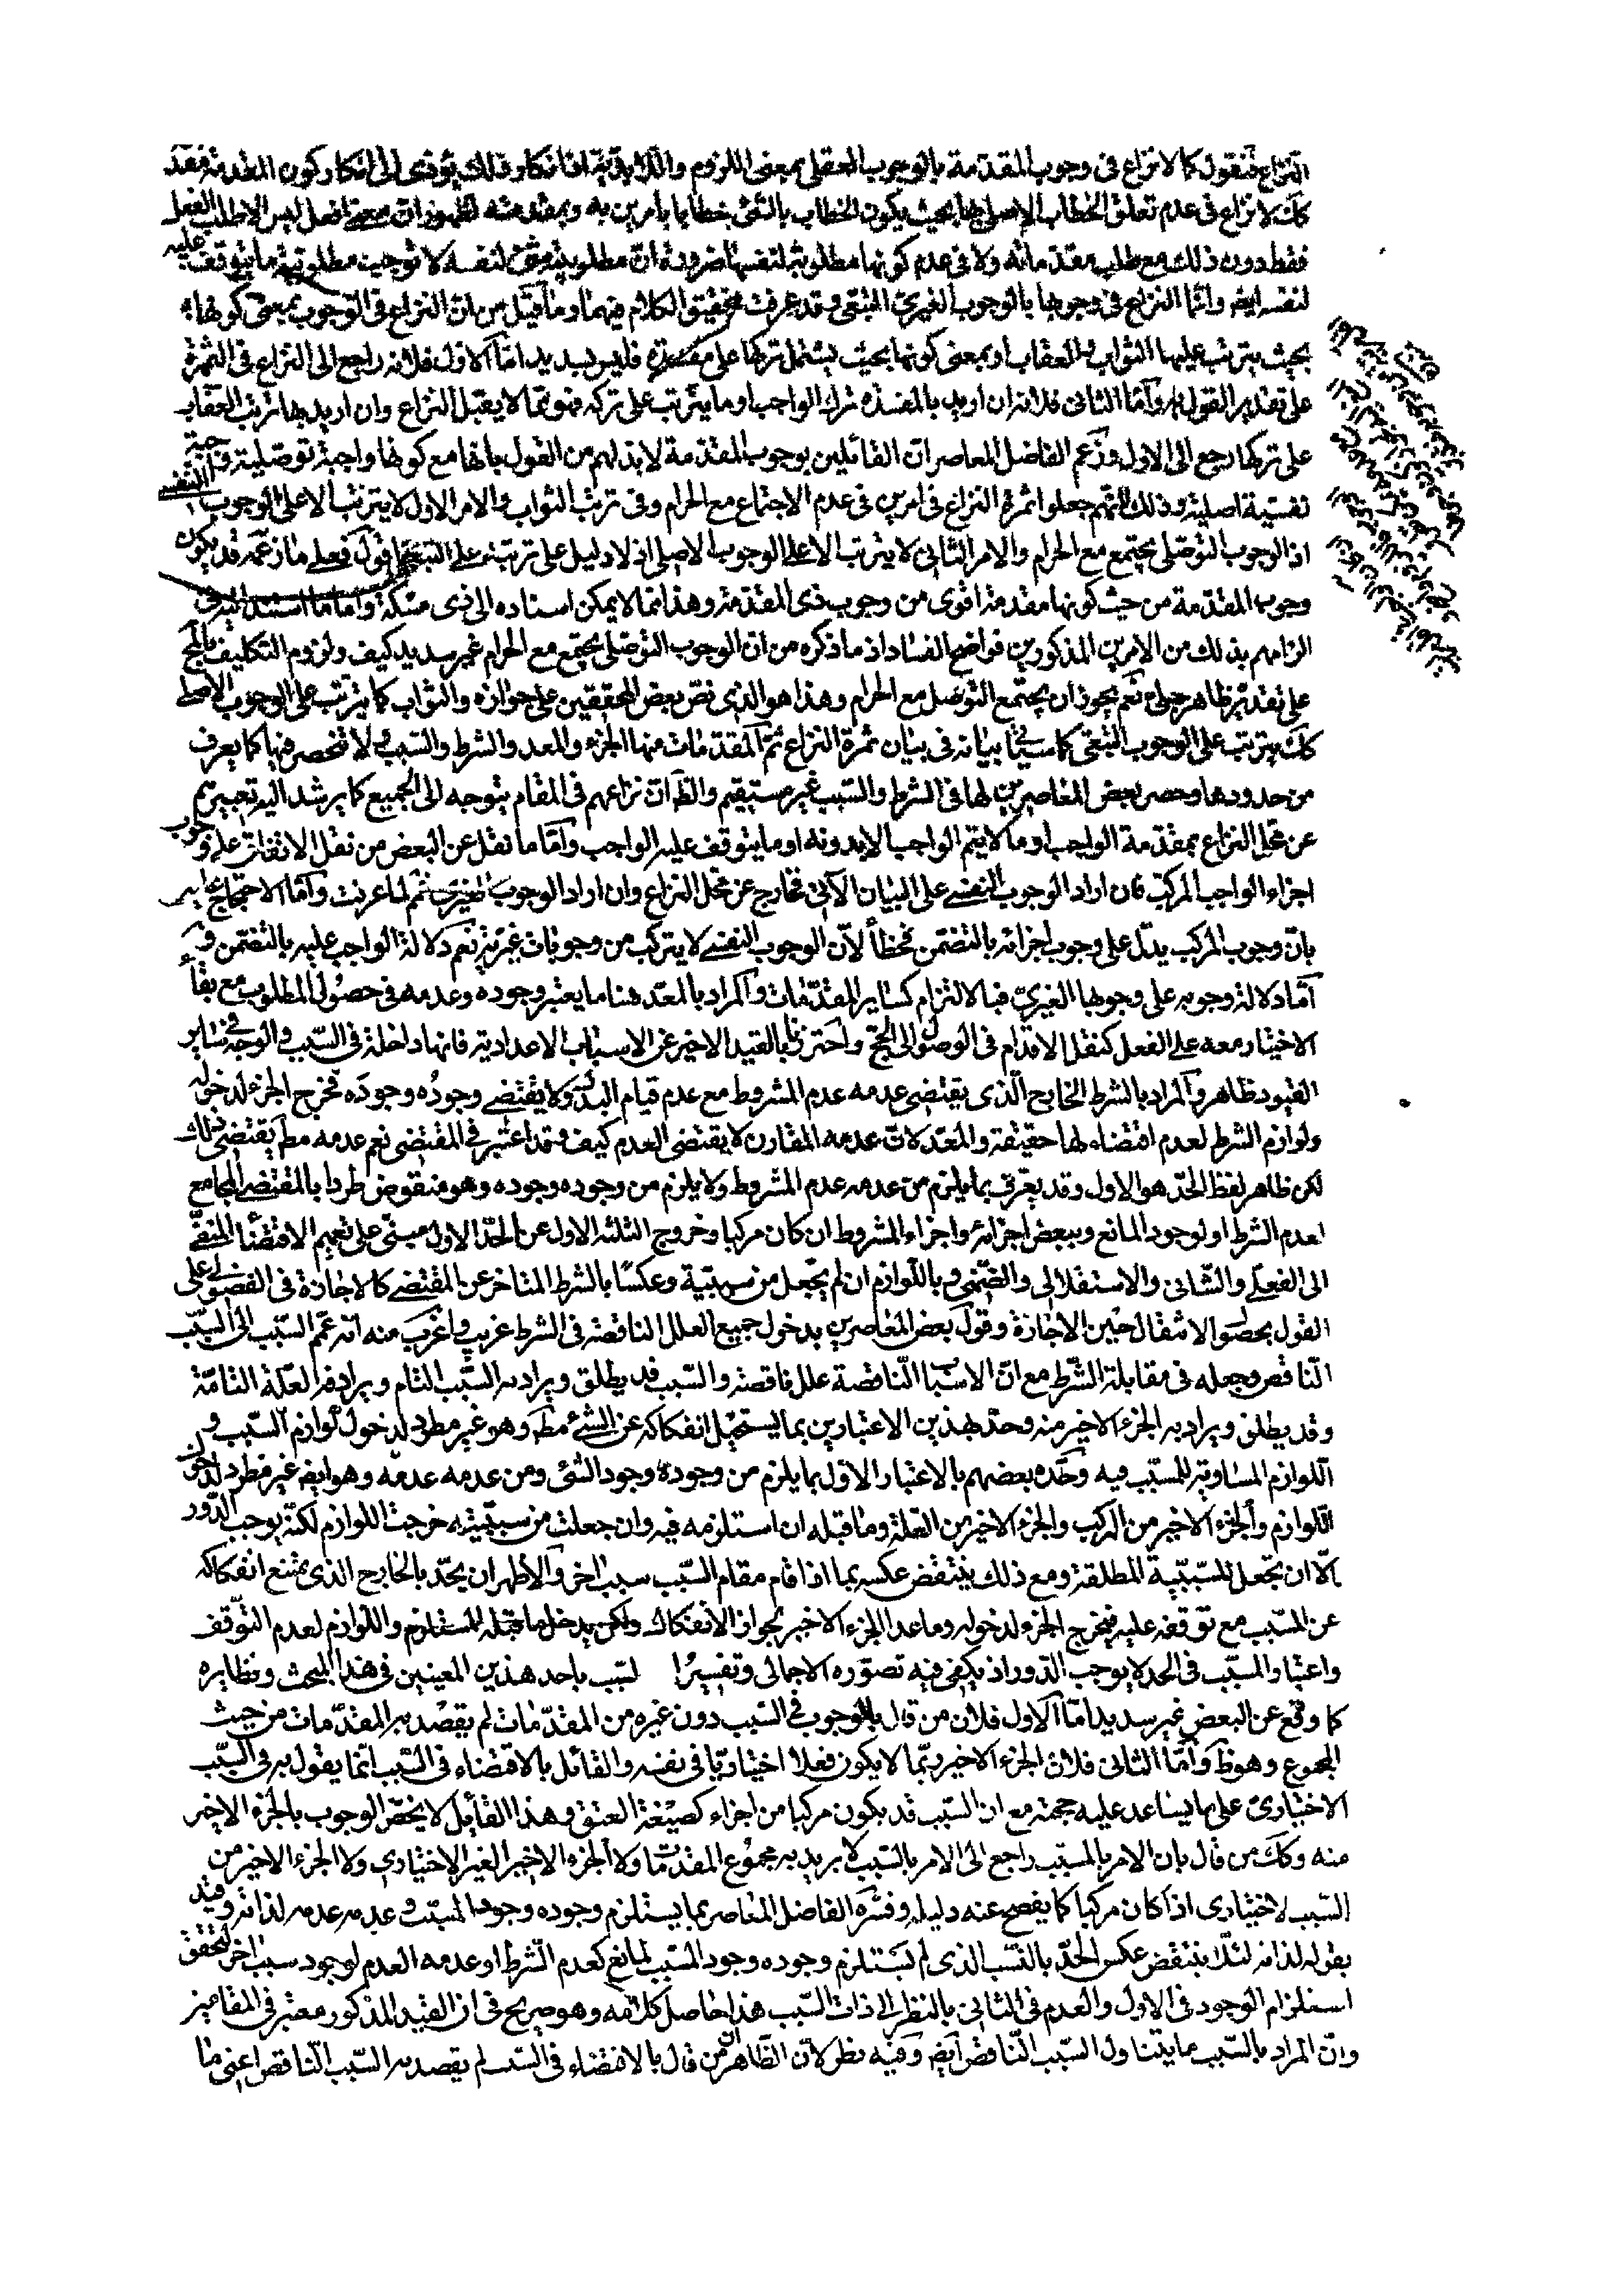 النزاع فنقول كما لا نزاع فى وجوب المقدمة بالوجوب العقلى بمعنى اللزوم واللابدية اذ انكار ذلك يؤدى الى انكار كون المقدمة مقدمة
كك لا نزاع فى عدم تعلق الخطاب الاصلى بها بحيث يكون الخطاب بالشئ خطابا بامرين به وبمقدمته لظهور ان معنى افعل ليس الا طلب الفعل
فقط دون ذلك مع طلب مقدماته ولا فى عدم كونها مطلوبة لنفسها ضرورة ان مطلوبية شئ لنفسه لا توجب مطلوبية ما يتوقف عليه
لنفسه ايضا وانما النزاع فى وجوبها بالوجوب الغيرى التبعى وقد عرفت تحقيق الكلام فيهما وما قيل من ان النزاع فى الوجوب بمعنى كونها
بحيث يترتب عليها الثواب والعقاب او بمعنى كونها بحيث يشتمل تركها على مفسدة فليس بسديد اما الاول فلانه راجع الى النزاع فى الثمرة
على تقدير القول به واما الثانى فلانه ان اريد بالمفسدة ترك الواجب او ما يترتب على تركه فهو مما لا يقبل النزاع وان اريد بها ترتب العقاب
على تركها رجع الى الاول وزعم الفاضل المعاصر ان القائلين بوجوب المقدمة لا بد لهم من القول بانها مع كونها واجبة توصلية واجبة
نفسية اصلية وذلك لانهم جعلوا ثمرة النزاع فى امرين فى عدم الاجتماع مع الحرام وفى ترتب الثواب والامر الاول لا يترتب الا على الوجوب النفسى
اذ الوجوب التوصلى يجتمع مع الحرام والامر الثانى لا يترتب الا على الوجوب الاصلى اذ لا دليل على ترتبه على التبعى اقول فعلى ما زعمه قد يكون
وجوب المقدمة من حيث كونها مقدمة اقوى من وجوب ذى المقدمة وهذا مما لا يمكن اسناده الى ذى مسكة واما ما استند اليه فى
الزامهم بذلك من الامرين المذكورين فواضح الفساد اذ ما ذكره من ان الوجوب التوصلى يجتمع مع الحرام غير سديد كيف ولزوم التكليف بالمح
على تقديره ظاهر جلى نعم يجوز ان يجتمع التوصل مع الحرام وهذا هو الذى نص بعض المحققين على جوازه والثواب كما يترتب على الوجوب الاصلى
كك يترتب على الوجوب التبعى كما سيأتى بيانه فى بيان ثمرة النزاع ثم المقدمات منها الجزء والمعد والشرط والسبب ولا تنحصر فيها كما يعرف
من حدودها وحصر بعض المعاصرين لها فى الشرط والسبب غير مستقيم والظ ان نزاعهم فى المقام يتوجه الى الجميع كما يرشد اليه تعبيرهم
عن محل النزاع بمقدمة الواجب او ما لا يتم الواجب الا بدونه او ما يتوقف عليه الواجب واما ما نقل عن البعض من نقل الاتفاق على وجوب
اجزاء الواجب المركب فان اراد الوجوب النفسى على البيان الآتى فخارج عن محل النزاع وان اراد الوجوب الغيرى فمم لما عرفت واما الاحتجاج عليه
بان وجوب المركب يدل على وجوب اجزائه بالتضمن فخطأ لان الوجوب النفسى لا يتركب من وجوبات غيرية نعم دلالة الواجب عليه بالتضمن
اما دلالة وجوبه على وجوبها الغيرى فبالالتزام كساير المقدمات والمراد بالمعد هنا ما يعتبر وجوده وعدمه فى حصول المطلوب مع بقاء
الاختيار معه على الفعل كنقل الاقدام فى الوصول الى الحج واحترزنا بالقيد الاخير عن الاسباب الاعدادية فانها داخلة فى السبب والوجه فى ساير
القيود ظاهر والمراد بالشرط الخارج الذى يقتضى عدمه عدم المشروط مع عدم قيام البدل ولا يقتضى وجوده وجوده فخرج الجزء لدخوله
ولوازم الشرط لعدم اقتضاء لها حقيقة والمعد لان عدمه المقارن لا يقتضى العدم كيف وقد اعتبر فى المقتضى نعم عدمه مط يقتضى ذلك
لكن ظاهر لفظ الحد هو الاول وقد يعرف بما يلزم من عدمه عدم المشروط ولا يلزم من وجوده وجوده وهو منقوض طردا بالمقتضى المجامع
لعدم الشرط او لوجود المانع وببعض اجزائه واجزاء المشروط ان كان مركبا وخروج الثلثة الاول عن الحد الاول مبنى على تعميم الاقتضاء المنفى
الى الفعلى والشأنى والاستقلالى والضمنى وباللوازم ان لم يجعل من سببية وعكسا بالشرط المتاخر عن المقتضى كالاجازة فى الفضولى على
القول بحصول الانتقال حين الاجازة وقول بعض المعاصرين بدخول جميع العلل الناقصة فى الشرط غريب واغرب منه انه عمم السبب الى السبب
الناقص وجعله فى مقابلة الشرط مع ان الاسباب الناقصة علل ناقصة والسبب قد يطلق ويراد به السبب التام ويرادفه العلة التامة
وقد يطلق ويراد به الجزء الاخير منه وحد بهذين الاعتبارين بما يستحيل انفكاكه عن الشئ مط وهو غير مطرد لدخول لوازم السبب و
اللوازم المساوية للمسبب فيه وحده بعضهم بالاعتبار الاول بما يلزم من وجوده وجود الشئ ومن عدمه عدمه وهو ايضا غير مطرد لدخول
اللوازم والجزء الاخير من المركب والجزء الاخير من العلة وما قبله ان استلزمه فيه وان جعلت من سببيته خرجت اللوازم لكنه يوجب الدور
الا ان تجعل للسببية المطلقة ومع ذلك ينتقض عكسه بما اذا قام مقام السبب سبب اخر والاظهر ان يحد بالخارج الذى يمتنع انفكاكه
عن المسبب مع توقفه عليه فيخرج الجزء لدخوله وما عدا الجزء الاخير لجواز الانفكاك ولكن يدخل ما قبله المستلزم واللوازم لعدم التوقف
واعتبار المسبب فى الحد لا يوجب الدور اذ يكفى فيه تصوره الاجمالى وتفسير السبب باحد هذين المعنيين فى هذا المبحث ونظايره
كما وقع عن البعض غير سديد اما الاول فلان من قال بالوجوب فى السبب دون غيره من المقدمات لم يقصد به المقدمات من حيث
المجموع وهو ظ واما الثانى فلان الجزء الاخير ربما لا يكون فعلا اختياريا فى نفسه والقائل بالاقتضاء فى السبب انما يقول به فى السبب
الاختيارى على ما يساعد عليه حججه مع ان السبب قد يكون مركبا من اجزاء كصيغة العتق وهذا القائل لا يخص الوجوب بالجزء الاخير
منه وكك من قال بان الامر بالمسبب راجع الى الامر بالسبب لا يريد به مجموع المقدمات ولا الجزء الاخير الغير الاختيارى ولا الجزء الاخير من
السبب الاختيارى اذا كان مركبا كما يفصح عنه دليله وفسره الفاضل المعاصر بما يستلزم وجوده وجود المسبب وعدمه عدمه لذاته وقيد
بقوله لذاته لئلا ينتقض عكس الحد بالسبب الذى لم يستلزم وجوده وجود المسبب لمانع كعدم الشرط او عدمه العدم لوجود سبب اخر لتحقق
استلزام الوجود فى الاول والعدم فى الثانى بالنظر الى ذات السبب هذا حاصل كلامه وهو صريح فى ان القيد المذكور معتبر فى المقامين
وان المراد بالسبب ما يتناول السبب الناقص ايضا وفيه نظر لان الظاهر ان من قال بالاقتضاء فى السبب لم يقصد به السبب الناقص اعنى ما